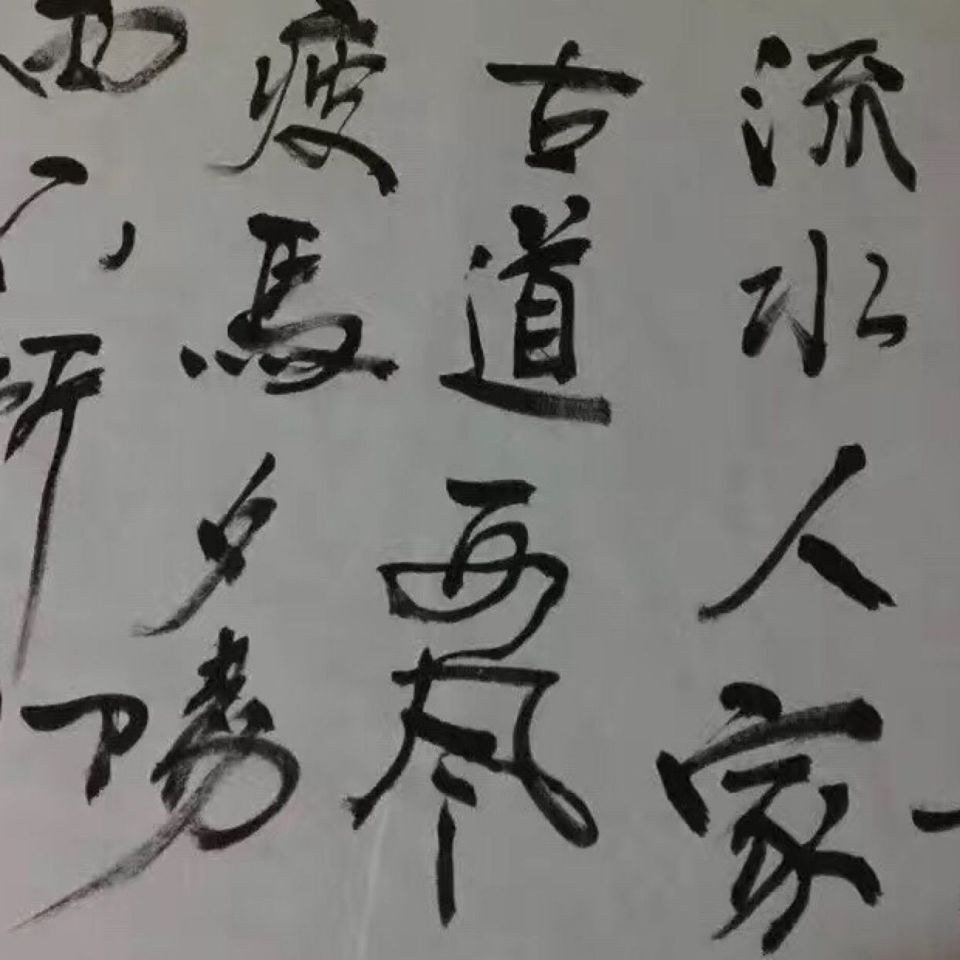 流水人家
古道西風
疲馬夕陽
西下